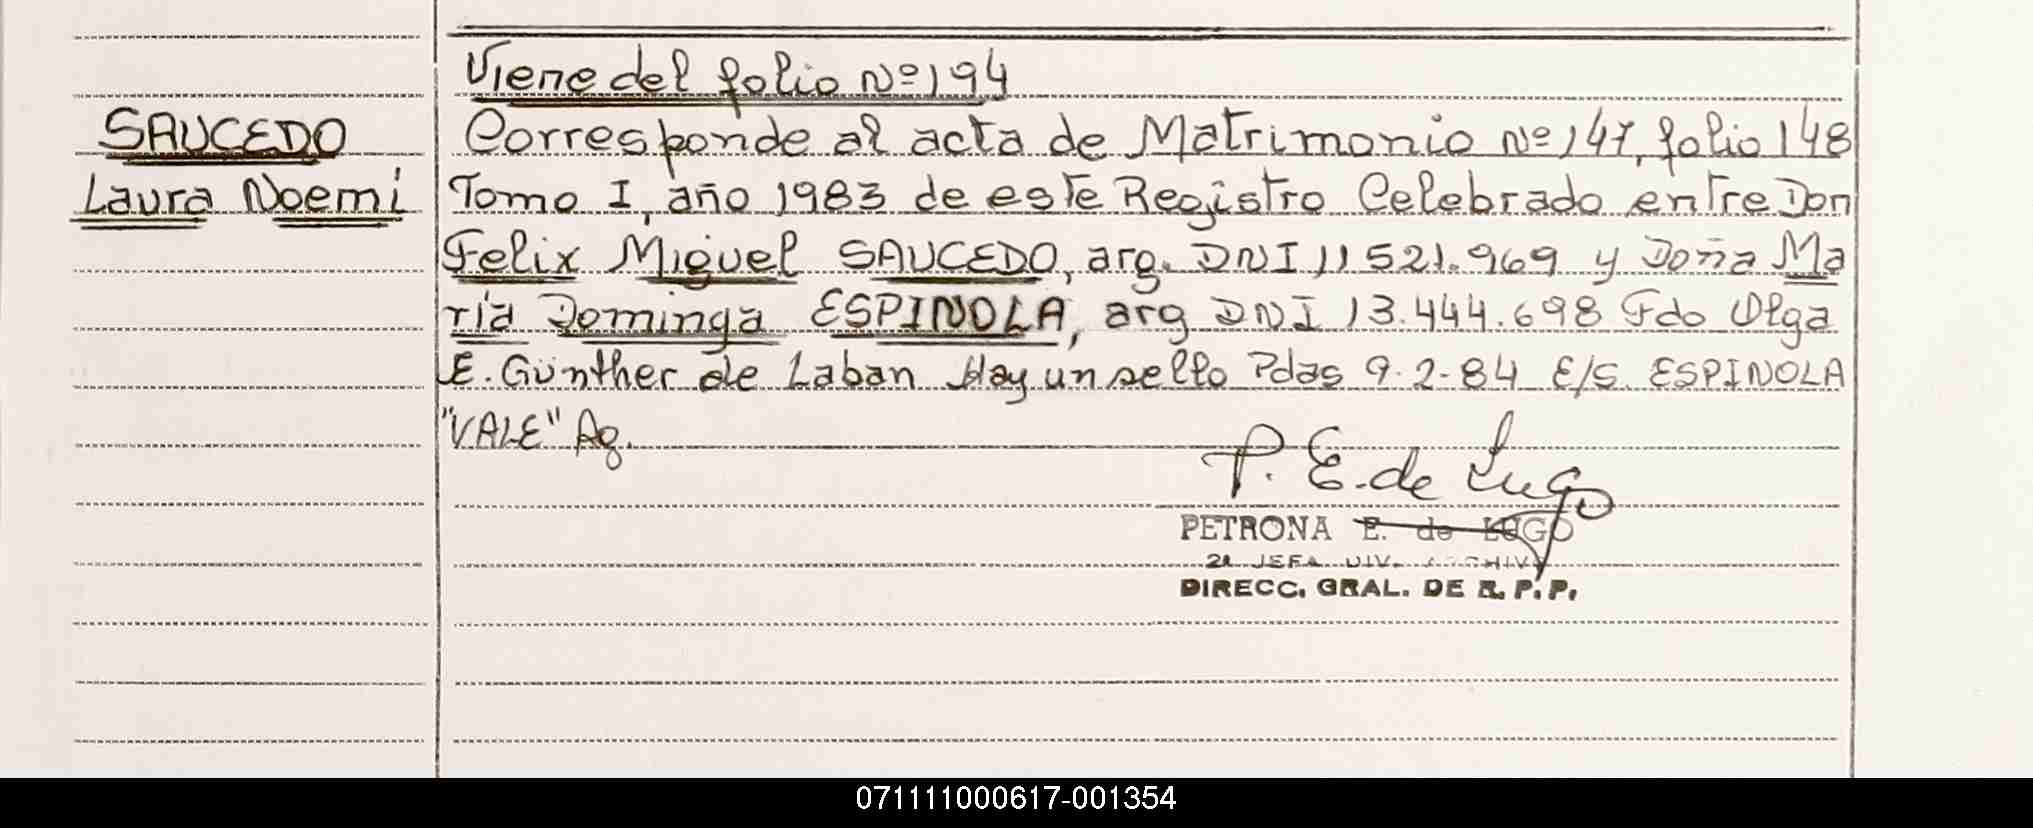 Viene del folio Nº 194
SAUCEDO
Laura Noemi
Corresponde al acta de Matrimonio Nº 147, folio 148
Tomo I, año 1983 de este Registro Celebrado entre Don
Felix Miguel SAUCEDO, arg. DNI 11521.969 y Doña Ma
ria Dominga ESPINOLA, arg DNI 13.444.698 Fdo Olga
E. Günther de Laban Hay un sello Pdas 9-2-84 E/S. ESPINOLA
"VALE" Ag.
P. E. de Lugo
PETRONA E. de LUGO
2ª JEFA DIV. ARCHIVO
DIRECC. GRAL. DE R. P. P.
071111000617-001354